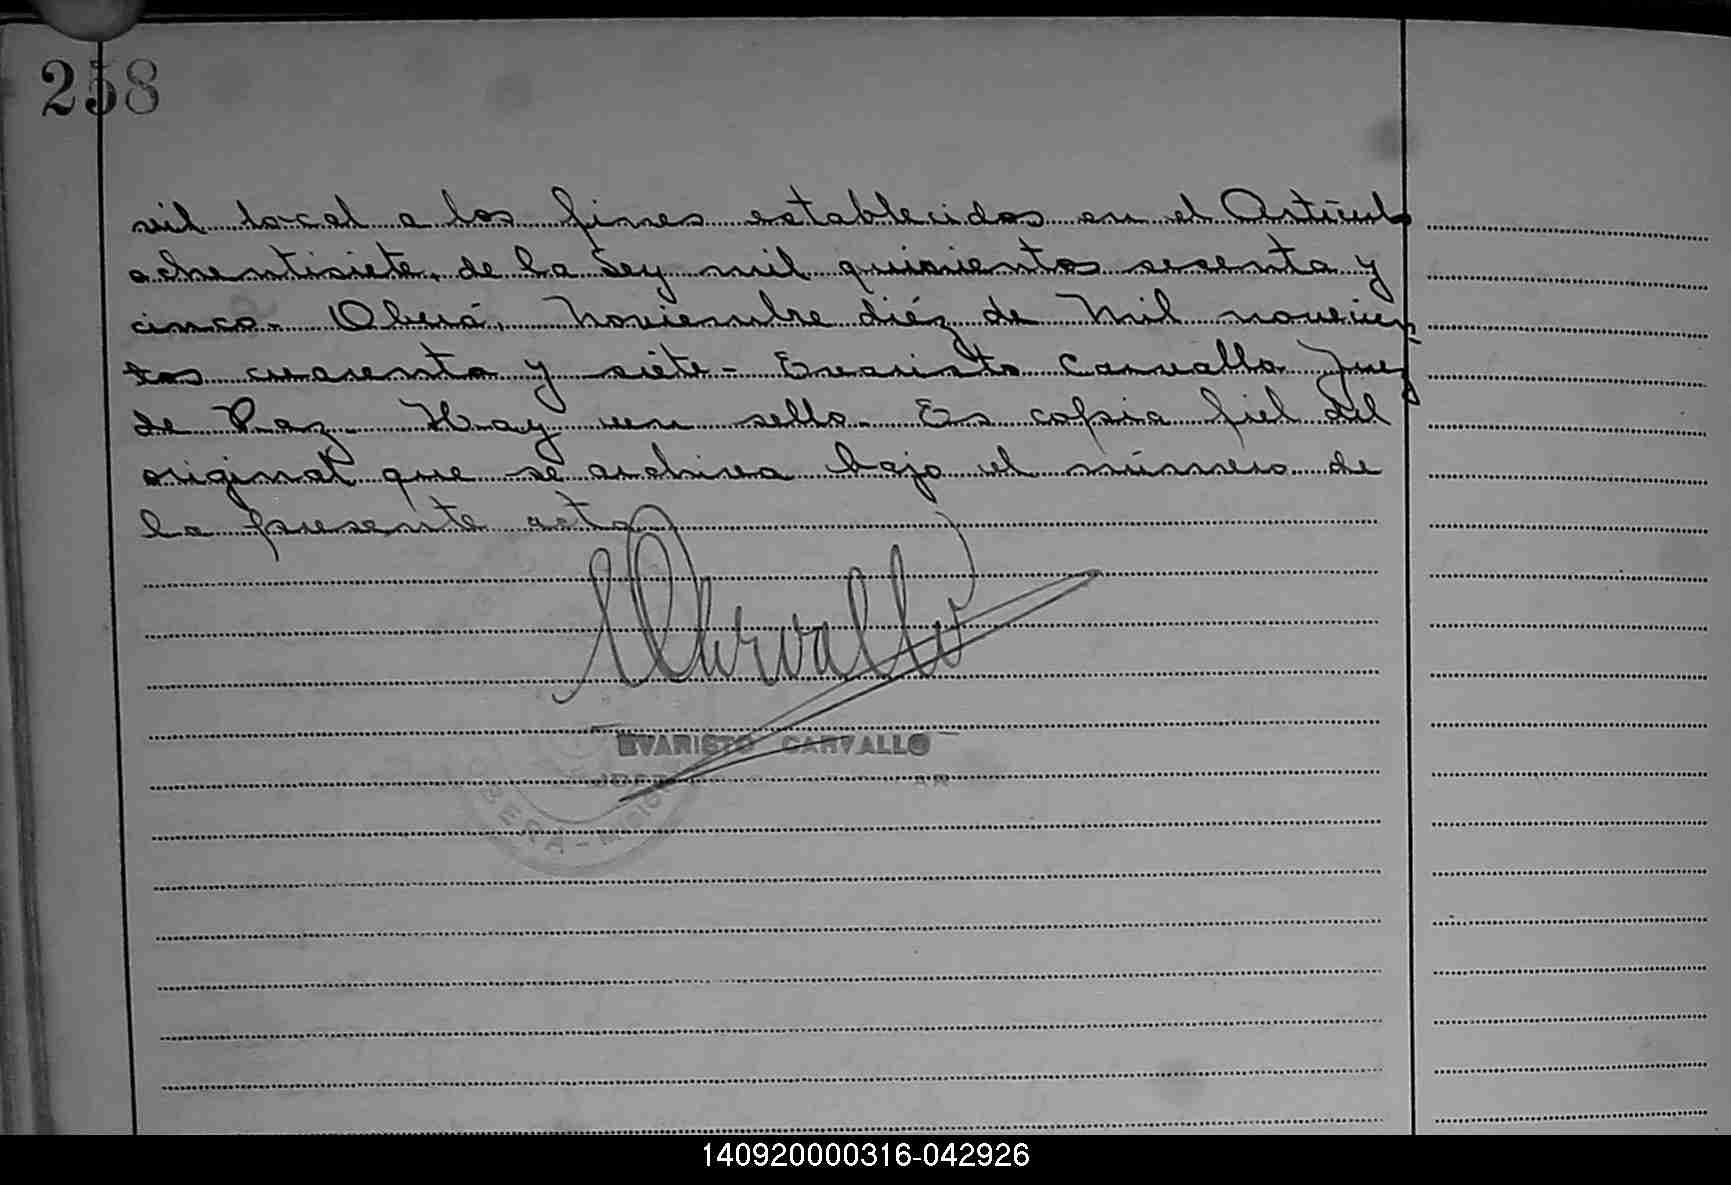 258
vil local a los fines establecidos en el Artículo
ochentisiete, de la Ley mil quinientos sesenta y
cinco. Oberá, Noviembre diéz de Mil novecien-
tos cuarenta y siete - Evaristo Carvallo Juez
de Paz. Hay un sello. Es copia fiel del
original que se archiva bajo el número de
la presente acta
Carvallo
EVARISTO CARVALLO
OBERA - MISIONES
140920000316-042926